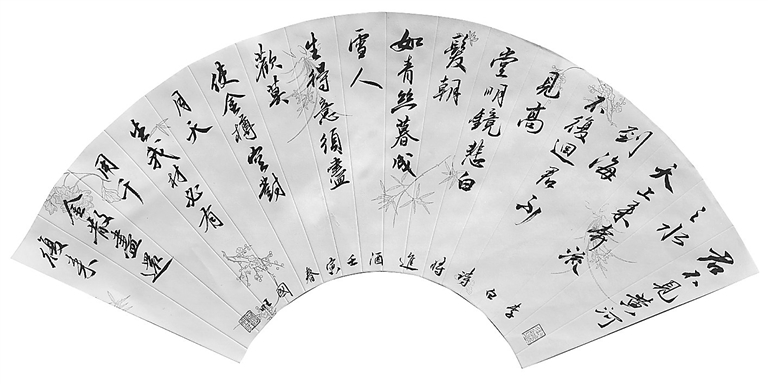 君不見黃河
之水
天上來奔流
到海
不復迴君不
見高
堂明鏡悲白
髮朝
如青絲暮成
雪人
生得意須盡
歡莫
使金樽空對
月天
生我材必有
用千
金散盡還
復來
李白詩將進酒壬寅春國